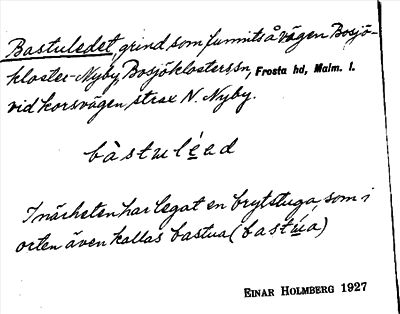 Bastuledet, grind, som funnits å vägen Bosjö-
kloster-Nyby, Bosjöklosters sn, Frosta hd, Malm. l.
vid korsvägen, strax N. Nyby.
bàstuléad
I närheten har legat en brytstuga, som i
orten även kallas bastua (bastúa)
EINAR HOLMBERG 1927